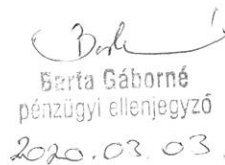 Barta Gáborné
pénzügyi ellenjegyző
2020.03.03.